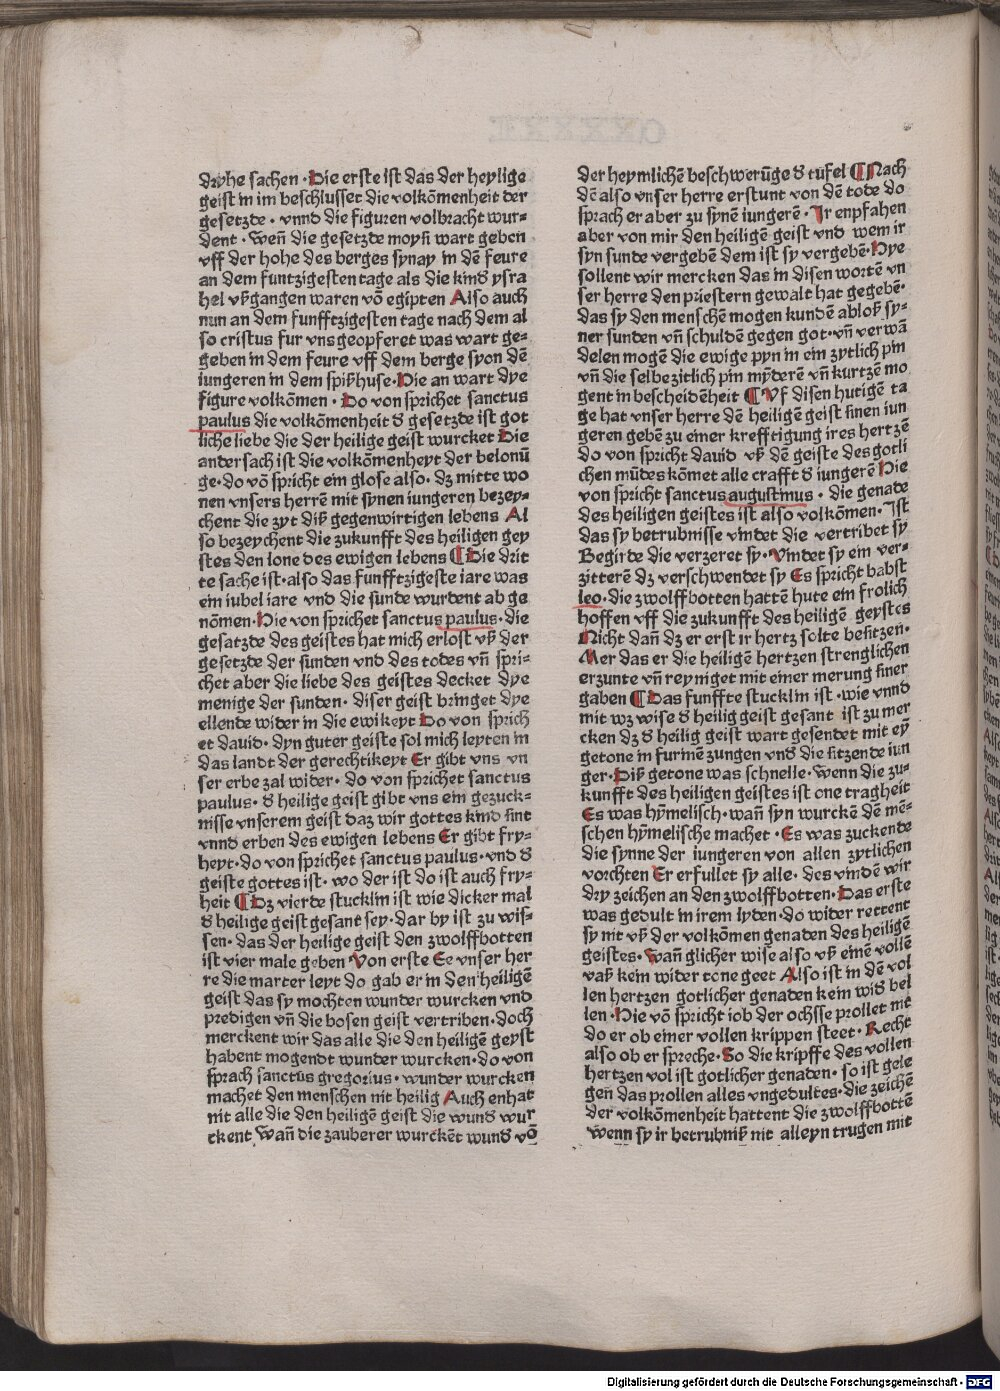 dryhe sachen · Die erste ist das der heylige
geist in im beschlusset die volkōmenheit der
gesetzde · vnnd die figuren volbracht wur-
dent · Weñ die gesetzde moyſi wart geben
vff der hohe des berges synay in dē feure
an dem funtzigesten tage als die kind ysra
hel vß gangen waren vō egipten Also auch
nun an dem funfftzigesten tage nach dem al
so cristus fur vns geopferet was wart ge-
geben in dem feure vff dem berge syon dē
iungeren in dem spißhuse · Die an wart dye
figure volkōmen · Do von sprichet sanctus
paulus die volkōmenheit d̄ gesetzde ist got
liche liebe die der heilige geist wurcket Die
ander sach ist die volkōmenheyt der belonū
ge · do vō spricht ein glose also · dz mitte wo
nen vnsers herrē mit synen iungeren bezey-
chent die zyt diß gegenwirtigen lebens Al
so bezeychent die zukunfft des heiligen gey
stes den lone des ewigen lebens ¶ Die drit
te sache ist · also das funfftzigeste iare was
ein iubel iare vnd die sunde wurdent ab ge
nōmen · Hie von sprichet sanctus paulus · die
gesatzde des geistes hat mich erlost vß der
gesetzde der sunden vnd des todes vñ spri-
chet aber die liebe des geistes decket dye
menige der sunden · diser geist bringet dye
ellende wider in die ewikeyt Do von sprich
et dauid · dyn guter geiste sol mich leyten in
das landt der gerechtikeyt Er gibt vns vn
ser erbe zal wider · do von sprichet sanctus
paulus · d̄ heilige geist gibt vns ein gezuck-
nisse vnserem geist daz wir gottes kind sint
vnnd erben des ewigen lebens Er gibt fry-
heyt · do von sprichet sanctus paulus · vnd d̄
geiste gottes ist · wo der ist do ist auch fry-
heit ¶ Dz vierde stucklin ist wie dicker mal
d̄ heilige geist gesant sey · dar by ist zu wis-
sen · das der heilige geist den zwolffbotten
ist vier male geben Von erste Ee vnser her
re die marter leyt do gab er in den heiligē
geist das sy mochten wunder wurcken vnd
predigen vñ die bosen geist vertriben · doch
merckent wir das alle die den heiligē geyst
habent mogendt wunder wurcken · do von
sprach sanctus gregorius · wunder wurcken
machet den menschen nit heilig Auch enhat
nit alle die den heiligē geist die wund wur
ckent Wañ die zauberer wurckēt wund vō
der heymlichē beschwerūge d̄ tufel ¶ Nach
dē also vnser herre erstunt von dē tode do
sprach er aber zu synē iungerē · Ir enpfahen
aber von mir den heiligē geist vnd wem ir
syn sunde vergebē dem ist sy vergebē · Hye
sollent wir mercken das in disen wortē vn
ser herre den priestern gewalt hat gegebē ·
das sy den menschē mogen kundē abloß sy-
ner sunden vñ schuldē gegen got · vñ verwā
delen mogē die ewige pyn in ein zytlich pin
vñ die selbe zitlich pin mȳderē vñ kurtzē mo
gent in bescheidēheit ¶ Vf disen hutigē ta
ge hat vnser herre dē heiligē geist sinen iun
geren gebē zu einer krefftigung ires hertzē
do von spricht dauid vß dē geiste des gotli
chen mūdes kōmet alle crafft d̄ iungerē Hie
von spricht sanctus augustinus · die genade
des heiligen geistes ist also volkōmen · Ist
das sy betrubnisse vindet die vertribet sy
Begirde die verzeret sy · Vindet sy ein ver-
zitterē dz verschwendet sy Es spricht babst
leo · die zwolffbotten hattē hute ein frolich
hoffen vff die zukunfft des heiligē geystes
Nicht dañ dz er erst ir hertz solte besitzen ·
Mer das er die heiligē hertzen strenglichen
erzunte vñ reyniget mit einer merung siner
gaben ¶ Das funffte stucklin ist · wie vnnd
mit wz wise d̄ heilig geist gesant ist zu mer
cken dz d̄ heilig geist wart gesendet mit eỹ
getone in furinē zungen vnd die sitzende iun
ger · Diß getone was schnelle · wenn die zu-
kunfft des heiligen geistes ist one tragheit
Es was hȳmelisch · wañ syn wurckē dē mē-
schen hȳmelische machet · Es was zuckende
die synne der iungeren von allen zytlichen
vorchten Er erfullet sy alle · des vindē wir
dry zeichen an den zwolffbotten · Das erste
was gedult in irem lyden · do wider rettent
sy nit vß der volkōmen genaden des heiligē
geistes · Wañ glicher wise also vß einē volle
vaß kein wider tone geet Also ist in dē vol
len hertzen gotlicher genaden kein wid bel
len · Hie vō spricht iob der ochsse prollet nit
do er ob einer vollen krippen steet · Recht
also ob er spreche · So die kripffe des vollen
hertzen vol ist gotlicher genaden · so ist gele
geñ das prollen alles vngedultes · die zeichē
der volkōmenheit hattent die zwolffbottē
Wenn sy ir betrubniß nit alleyn trugen mit
Digitalisierung gefördert durch die Deutsche Forschungsgemeinschaft - DFG